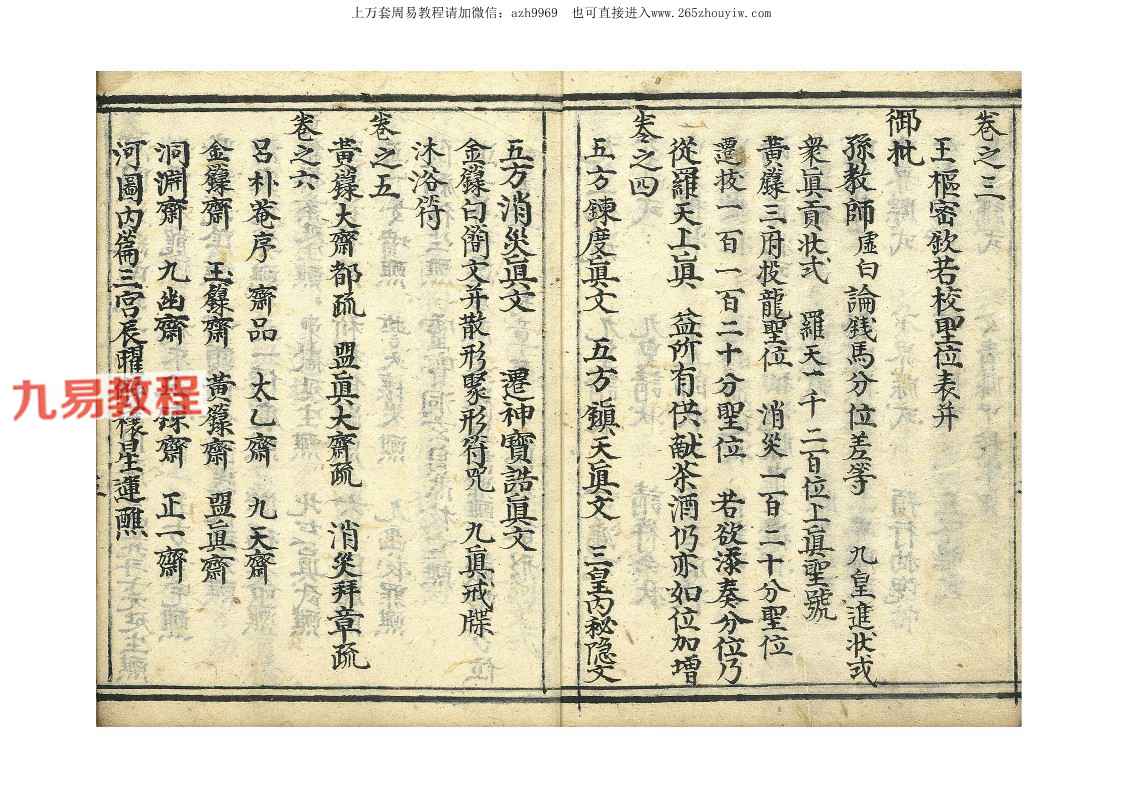 上万套周易教程请加微信：azh9969 也可直接进入www.265zhouyiw.com
卷之三
王樞密欽若校聖位表并
御批
孫教師虛白論錢馬分位差等 九皇進狀式
衆眞貢狀式 羅天一千二百位上眞聖號
黃籙三府投龍聖位 消災一百二十分聖位
遷拔一百一百二十分聖位 若欲添奏分位乃
從羅天上眞 益所有供献茶酒仍亦如位加增
卷之四
五方鍊度眞文 五方鎭天眞文 三皇內秘隐文
五方消災眞文 遷神寶誥眞文
金籙白簡文并散形聚形符咒 九眞戒牒
沐浴符
卷之五
黃籙大齋都疏 盟眞大齋疏 消災拜章疏
卷之六
呂朴菴序 齋品 太乙齋 九天齋
金籙齋 玉籙齋 黃籙齋 盟眞齋
洞淵齋 九幽齋 齋 正一齋
河圖內篇三宮辰曜 星運醮
九易教程